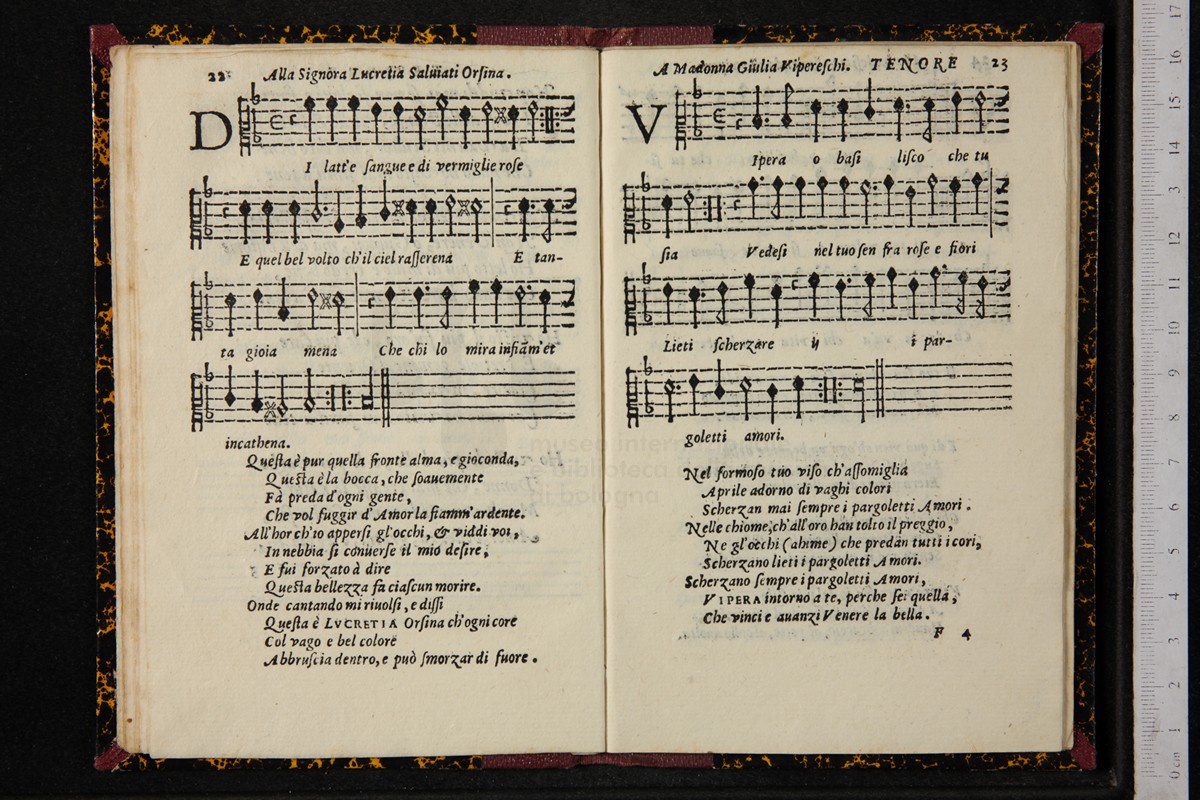 22 Alla Signora Lucretia Saluiati Orsina.
D
I latt'e sangue e di vermiglie rose
E quel bel volto ch'il ciel rasserena E tan-
ta gioia mena Che chi lo mira infiãm'et
incathena.
Questa è pur quella fronte alma, e gioconda,
Questa è la bocca, che soauemente
Fà preda d'ogni gente,
Che vol fuggir d'Amor la fiamm'ardente.
All'hor ch'io appersi gl'occhi, & viddi voi,
In nebbia si conuerse il mio desire,
E fui forzato à dire
Questa bellezza fa ciascun morire.
Onde cantando mi riuolsi, e dissi
Questa è LVCRETIA Orsina ch'ogni core
Col vago e bel colore
Abbruscia dentro, e può smorzar di fuore.
A Madonna Giulia Vipereschi. TENORE 23
V
Ipera o basi lisco che tu
sia Vedesi nel tuo sen fra rose e fiori
Lieti scherzare ij i par-
goletti amori.
Nel formoso tuo viso ch'assomiglia
Aprile adorno di vaghi colori
Scherzan mai sempre i pargoletti Amori.
Nelle chiome, ch'all'oro han tolto il preggio,
Ne gl'occhi (ahime) che predan tutti i cori,
Scherzano lieti i pargoletti Amori.
Scherzano sempre i pargoletti Amori,
VIPERA intorno a te, perche sei quella,
Che vinci e auanzi Venere la bella.
F 4
museo inter
biblioteca
di bologna
0 cm 1 2 3 4 5 6 7 8 9 10 11 12 13 14 15 16 17